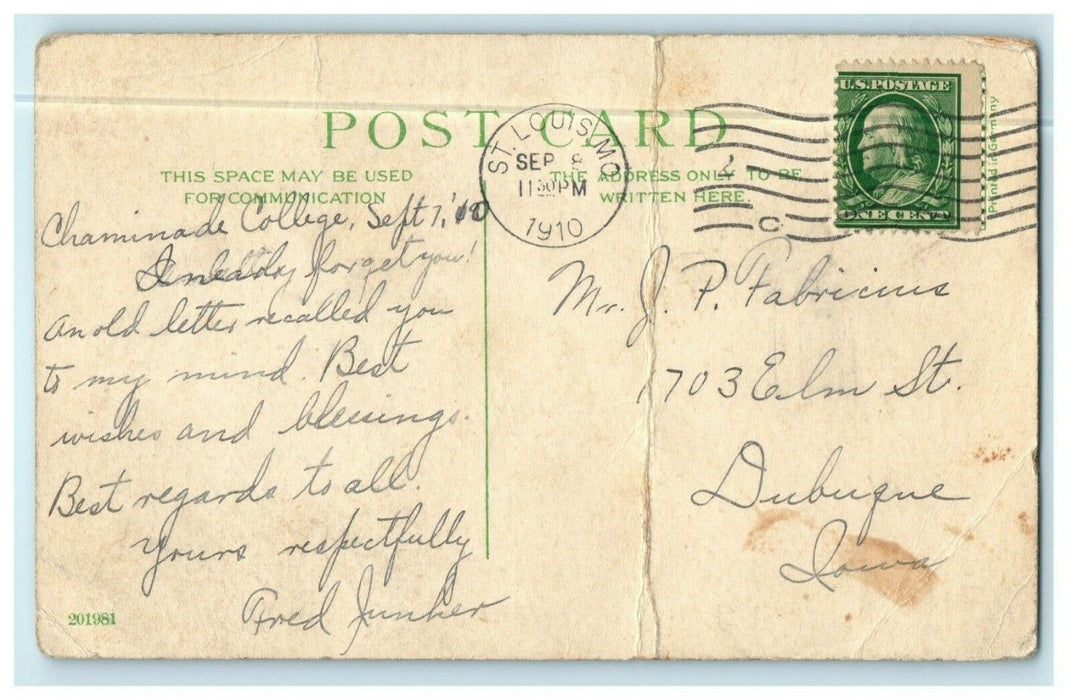 POST CARD
THIS SPACE MAY BE USED
FOR COMMUNICATION
THE ADDRESS ONLY TO BE
WRITTEN HERE.
ST. LOUIS, MO.
SEP 8
11 30 PM
1910
C
U.S. POSTAGE
ONE CENT
Printed in Germany
Chaminade College, Sept 7, '10
I nearly forget you!
An old letter recalled you
to my mind. Best
wishes and blessings.
Best regards to all.
Yours respectfully
Fred Junker
Mr. J. P. Fabricius
1703 Elm St.
Dubuque
Iowa
201981